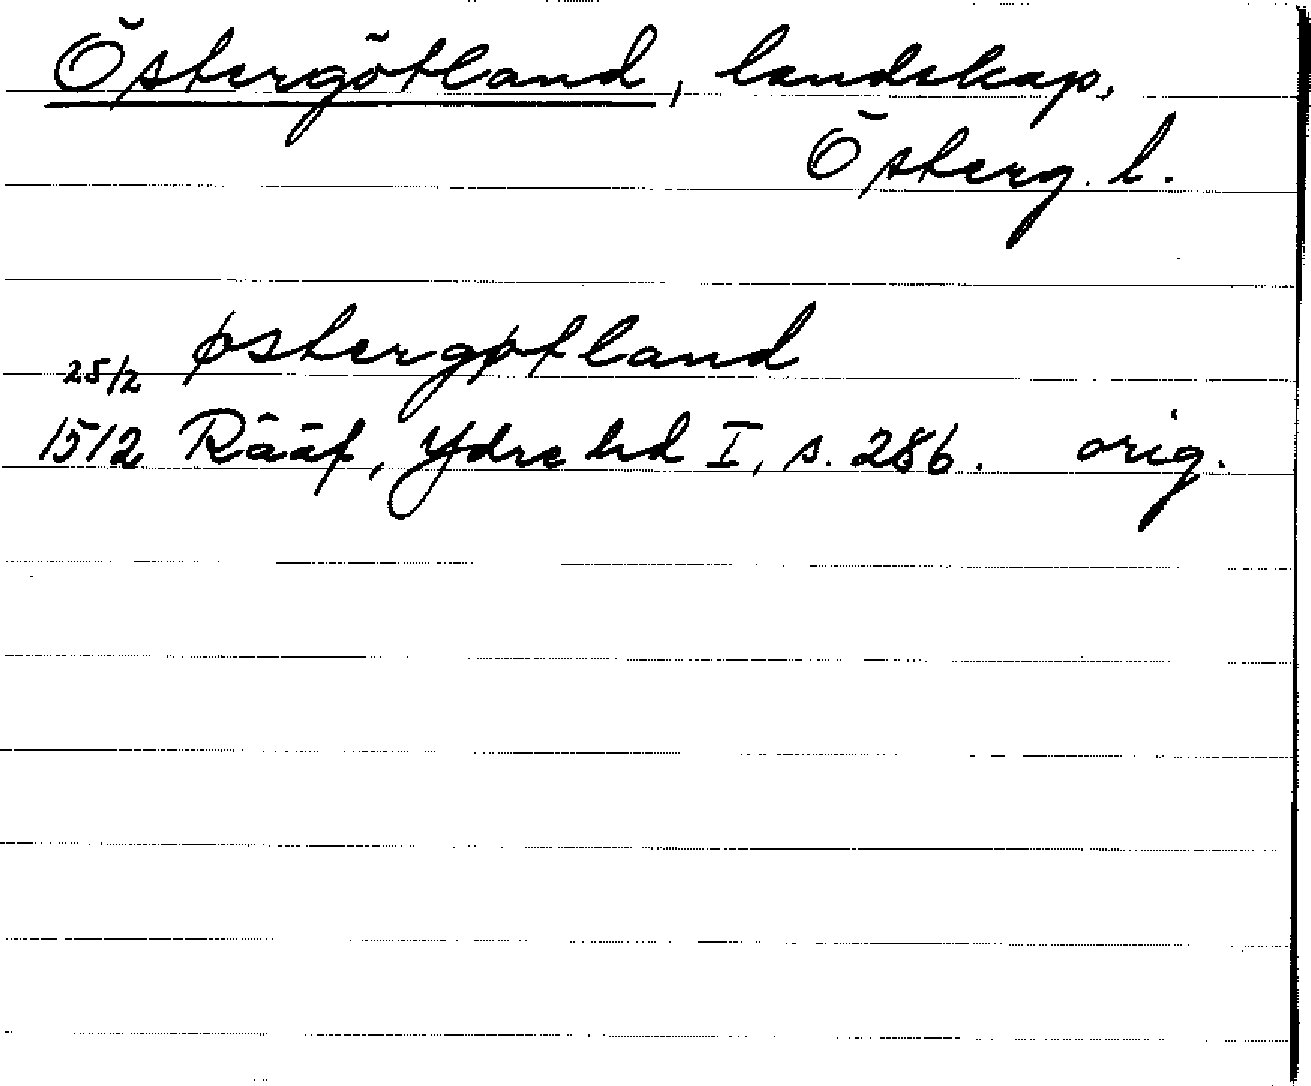 Östergötland, landskap,
Österg. l.
østergøtland
25/2
1512 Rääf, Ydre hd I, s. 286. orig.